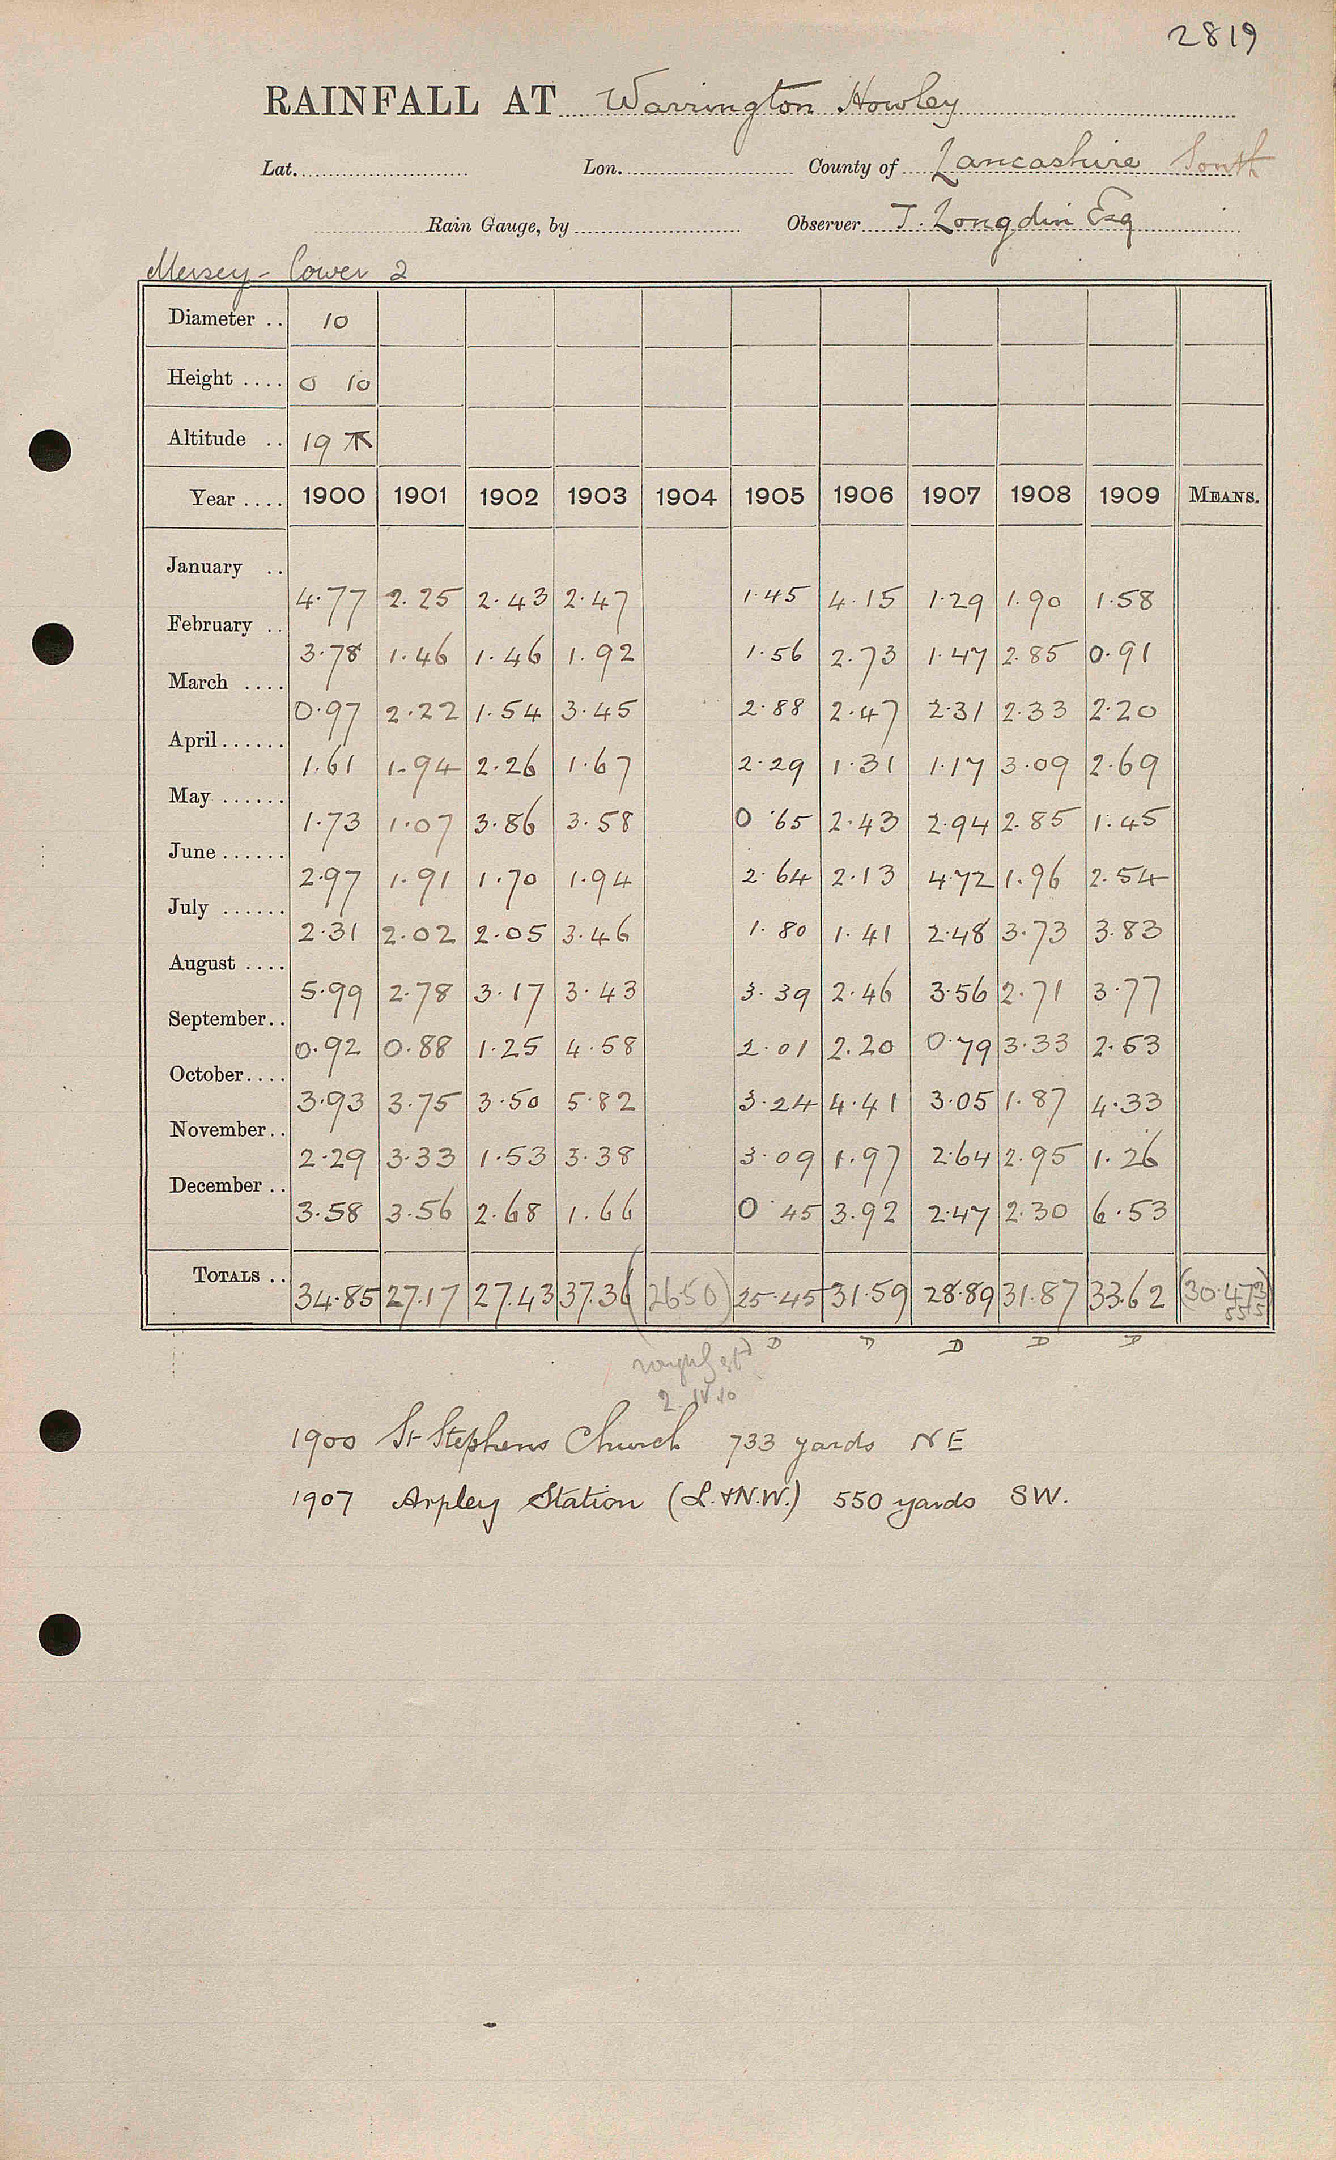 2819
RAINFALL AT Warrington Howley
Lat. Lon. County of Lancashire South
Rain Gauge, by Observer T. Longdin Esq
Mersey - Lower 2
Diameter .. 10
Height .... 0 10
Altitude .. 19
Year .... 1900 1901 1902 1903 1904 1905 1906 1907 1908 1909 MEANS.
January .. 4.77 2.25 2.43 2.47 1.45 4.15 1.29 1.90 1.58
February .. 3.78 1.46 1.46 1.92 1.56 2.73 1.47 2.85 0.91
March .... 0.97 2.22 1.54 3.45 2.88 2.47 2.31 2.33 2.20
April ...... 1.61 1.94 2.26 1.67 2.29 1.31 1.17 3.09 2.69
May ...... 1.73 1.07 3.86 3.58 0.65 2.43 2.94 2.85 1.45
June ...... 2.97 1.91 1.70 1.94 2.64 2.13 4.72 1.96 2.54
July ...... 2.31 2.02 2.05 3.46 1.80 1.41 2.48 3.73 3.83
August .... 5.99 2.78 3.17 3.43 3.39 2.46 3.56 2.71 3.77
September.. 0.92 0.88 1.25 4.58 2.01 2.20 0.79 3.33 2.53
October.... 3.93 3.75 3.50 5.82 3.24 4.41 3.05 1.87 4.33
November.. 2.29 3.33 1.53 3.38 3.09 1.97 2.64 2.95 1.26
December .. 3.58 3.56 2.68 1.66 0.45 3.92 2.47 2.30 6.53
TOTALS .. 34.85 27.17 27.43 37.36 (2650) 25.45 31.59 28.89 31.87 33.62 (30.47)
D D D D D
2.IV.10
1900 St Stephens Church 733 yards NE
1907 Arpley Station (L.&N.W.) 550 yards SW.